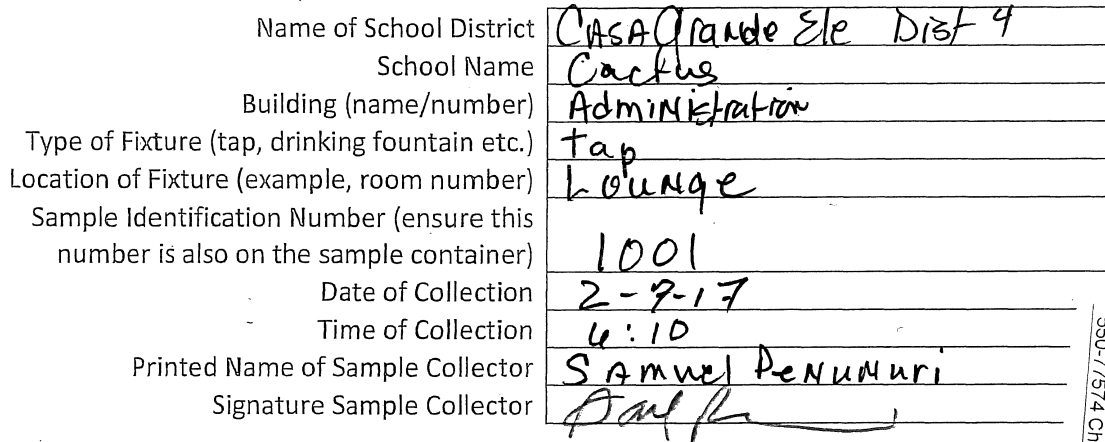 Name of School District CASA Grande Ele Dist 4
School Name Cactus
Building (name/number) Administration
Type of Fixture (tap, drinking fountain etc.) tap
Location of Fixture (example, room number) Lounge
Sample Identification Number (ensure this
number is also on the sample container) 1001
Date of Collection 2-7-17
Time of Collection 6:10
Printed Name of Sample Collector Samuel Penumuri
Signature Sample Collector